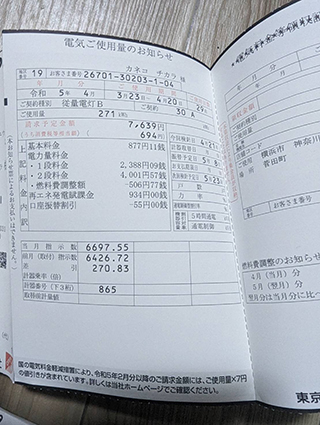 電気ご使用量のお知らせ
カネコ チカラ 様
19 お客さま番号 26701-30203-1-04
令和 5年 4月 3月23日~4月20日 29
ご契約種別 従量電灯B ご契約 30 A
ご使用量 271(kWh)
請求予定金額 7,639円
(うち消費税等相当額) 694円
上記料金内訳
基本料金 877円11銭
電力量料金
・1段料金 2,388円09銭
・2段料金 4,001円57銭
・燃料費調整額 -506円77銭
再エネ発電賦課金 934円00銭
口座振替割引 -55円00銭
5時間通電
通電制御
当月指示数 6697.55
前月(取付)指示数 6426.72
差引 270.83
計器乗率(倍)
計器番号(下3桁) 865
取替前計量値
国の電気料金軽減措置により、令和5年2月分以降のご請求金額には、ご使用量×7円
の値引きが含まれています。詳しくは当社ホームページでご確認ください。
横浜市 神奈川
菅田町
燃料費調整のお知らせ
4月(当月)分
5月(翌月)分
翌月分は当月分に比べ
東京